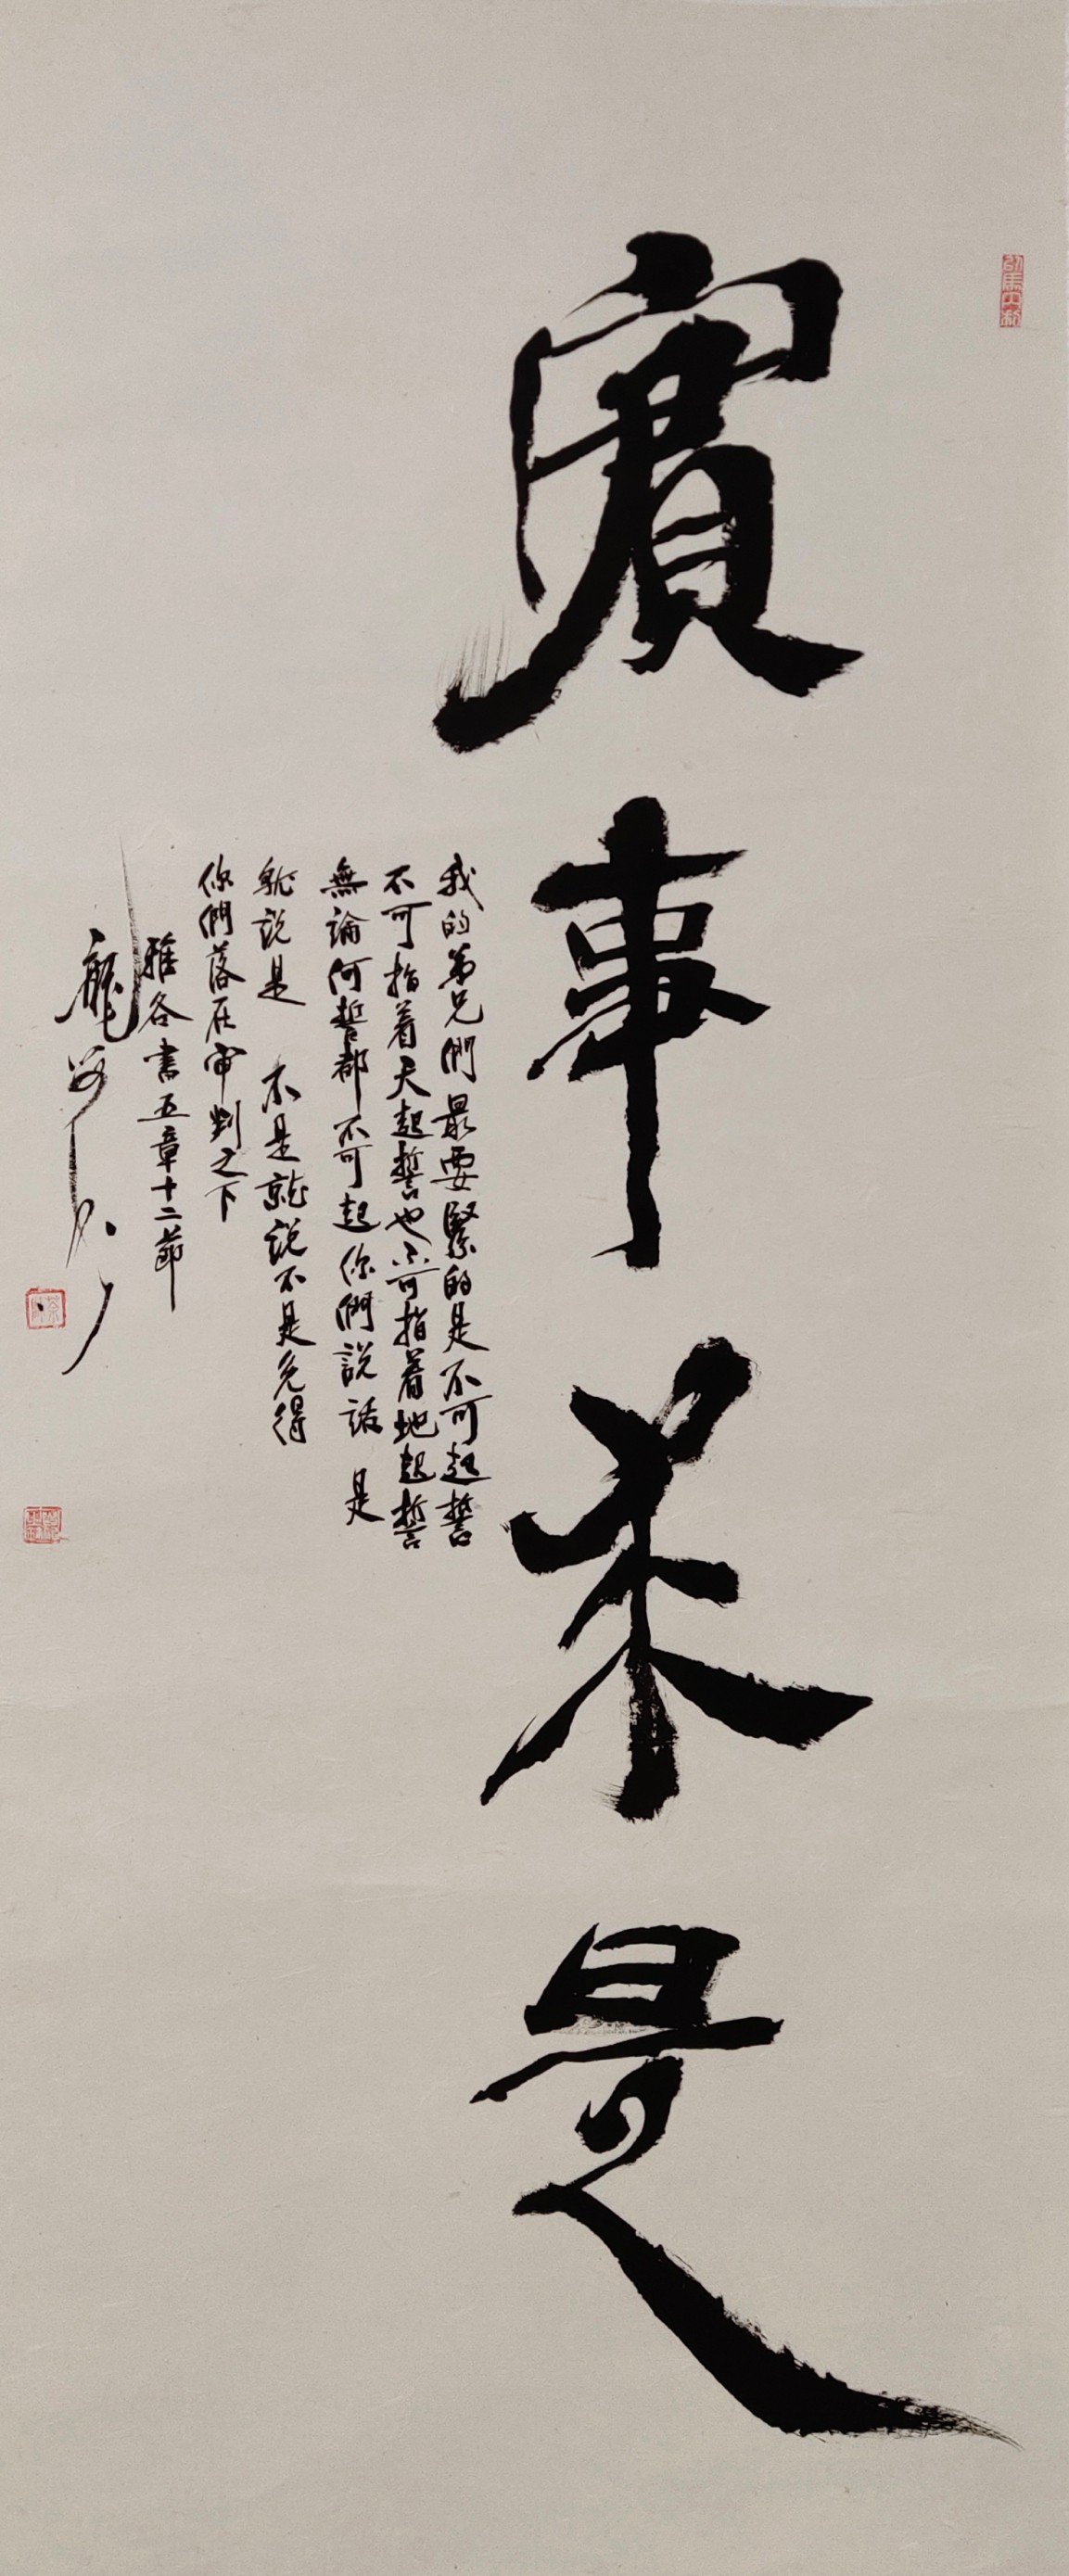 實事求是
我的弟兄們最要緊的是不可起誓
不可指着天起誓也不可指着地起誓
無論何誓都不可起你們說話 是
就說是 不是就說不是免得
你們落在审判之下
雅各書五章十二節